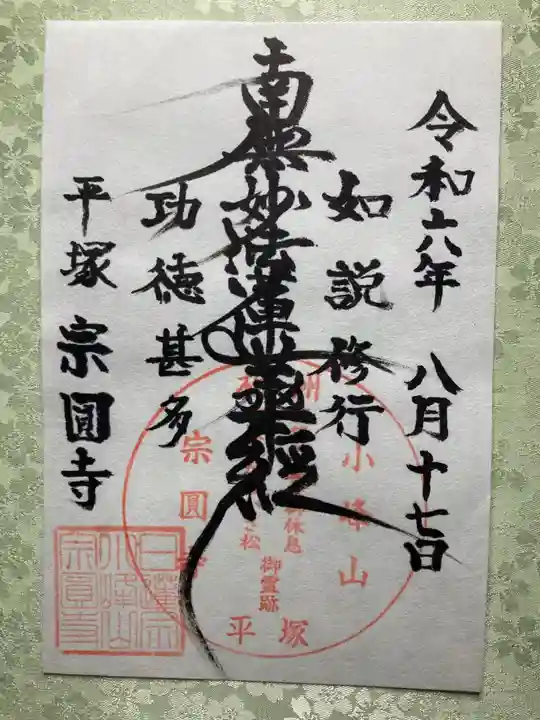 令和六年 八月十七日
如説修行
南無妙法蓮華経
功徳甚多
平塚 宗圓寺
小峰山
休息
御霊跡
松
宗圓寺
平塚
日蓮宗
小峰山
宗圓寺